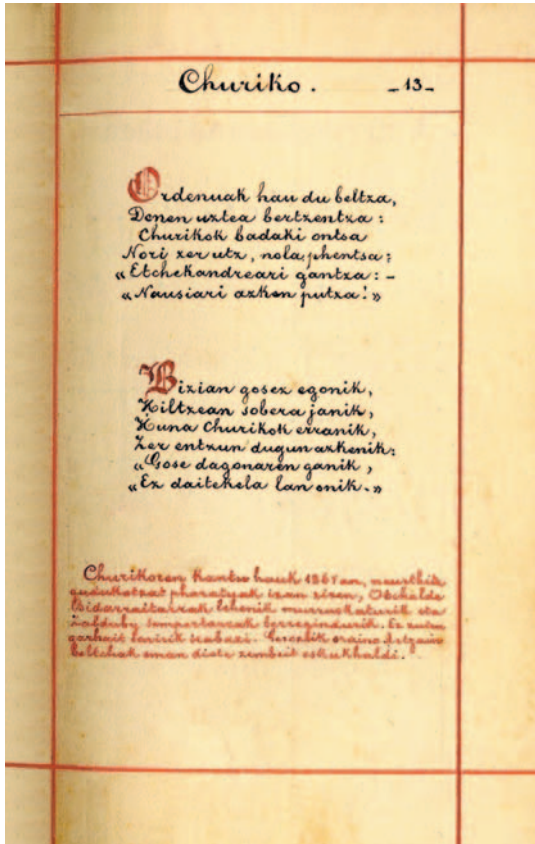 Churiko. -13-
Ordenuak hau du beltza,
Donen uztea bertzentza :
Churikok badaki ontsa
Nori zer utz, nola phentsa :
« Etchekandreari gantza : -
« Nausiari azken putza ! »
Bizian gosez egonik,
Hiltzean sobera janik,
Huna Churikok erranik,
Zer entzun dugun azkenik :
« Gose dagonaren ganik ,
« Ez daitekela lan onik. »
Churikoren kantu hauk 1867an, neurthitz
gudukotzat pharatuak izan ziren, Otchalde
Bidarraitarrak lehenik murruskaturik eta
Zalduby berregindurik. Ez zuten
garhait saririk irabazi. Geroztik oraino Artzain
Beltchak eman diote zembeit eskukhaldi.